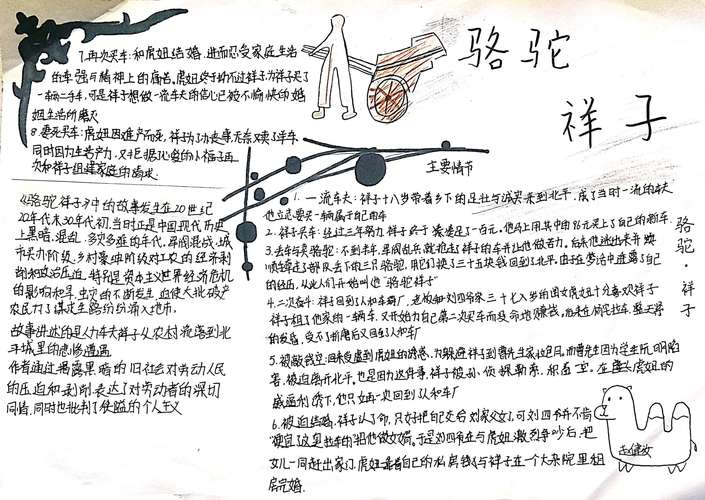 骆驼
祥子
7.再次买车:和虎妞结婚,进而忍受家庭生活
的牵强与精神上的痛苦。虎妞终于拗不过祥子为祥子买了
一辆二手车,可是祥子想做一流车夫的信心已被不愉快的婚
姻生活所磨灭
8.卖死买车:虎妞因难产而死,祥子为了办丧事,无奈又卖了洋车
同时因为生活产力,又拒绝了心爱的小福子再
次和祥子组建家庭的请求.
《骆驼祥子》中的故事发生在20世纪
20年代末30年代初,当时正是中国现代历史
上黑暗,混乱,多灾多难的年代,军阀混战,城
市买办阶级,乡村豪绅阶级对工农的经济剥
削和政治压迫,特别是资本主义世界经济危机
的影响和旱,虫灾的不断发生,迫使大批破产
农民为了谋生路纷纷涌入城市.
故事讲述的是人力车夫祥子从农村流落到北
平城里的悲惨遭遇
作者通过揭露黑暗的旧社会对劳动人民
的压迫和剥削,表达了对劳动者的深切
同情,同时也批判了
的个人主义
主要情节
1.一流车夫:祥子十八岁带着乡下的足壮与诚实来到北平,成了当时一流的车夫
他立志要买一辆属于自己的车
2.祥子买车:经过三年努力,祥子终于凑足了一百元。他马上用其中的96元买上了自己的新车.
3.丢车与卖骆驼:不到半年,军阀乱兵就抢走了祥子的车并让他做苦力。后来他逃出来并
顺手牵走了部队丢下的三只骆驼,用它们换了三十五块钱回到了北平,由于在梦话中透露了自己
的经历,从此人们开始叫他"骆驼祥子"
4.二次奋斗:祥子回到了人和车厂,老板和刘四爷家三十七八岁的闺女虎妞十分喜欢祥子
祥子租了他家的一辆车,又开始为自己第二次买车而拼命地赚钱。后来在杨先生家拉车,整天
的
,受不了折磨后又回到人和车厂
5.被敲诈空:回来受虐到虎妞的诱惑,为躲避祥子到曹先生家拉包月,而曹先生因为学生阮明陷
害,被迫离开北平,也是因为这件事,祥子被孙侦探勒索,积蓄空。在虎妞的
威逼利诱下,他只好再一次回到了人和车厂
6.被迫结婚:祥子认了命,只好把自己交给刘家父女了,可刘四爷并不愿
他做女婿。于是刘四爷在与虎妞激烈争吵后,把
女儿一同赶出家门,虎妞靠着自己的私房钱与祥子在一个大杂院里租
房完婚.
骆
驼
祥
子